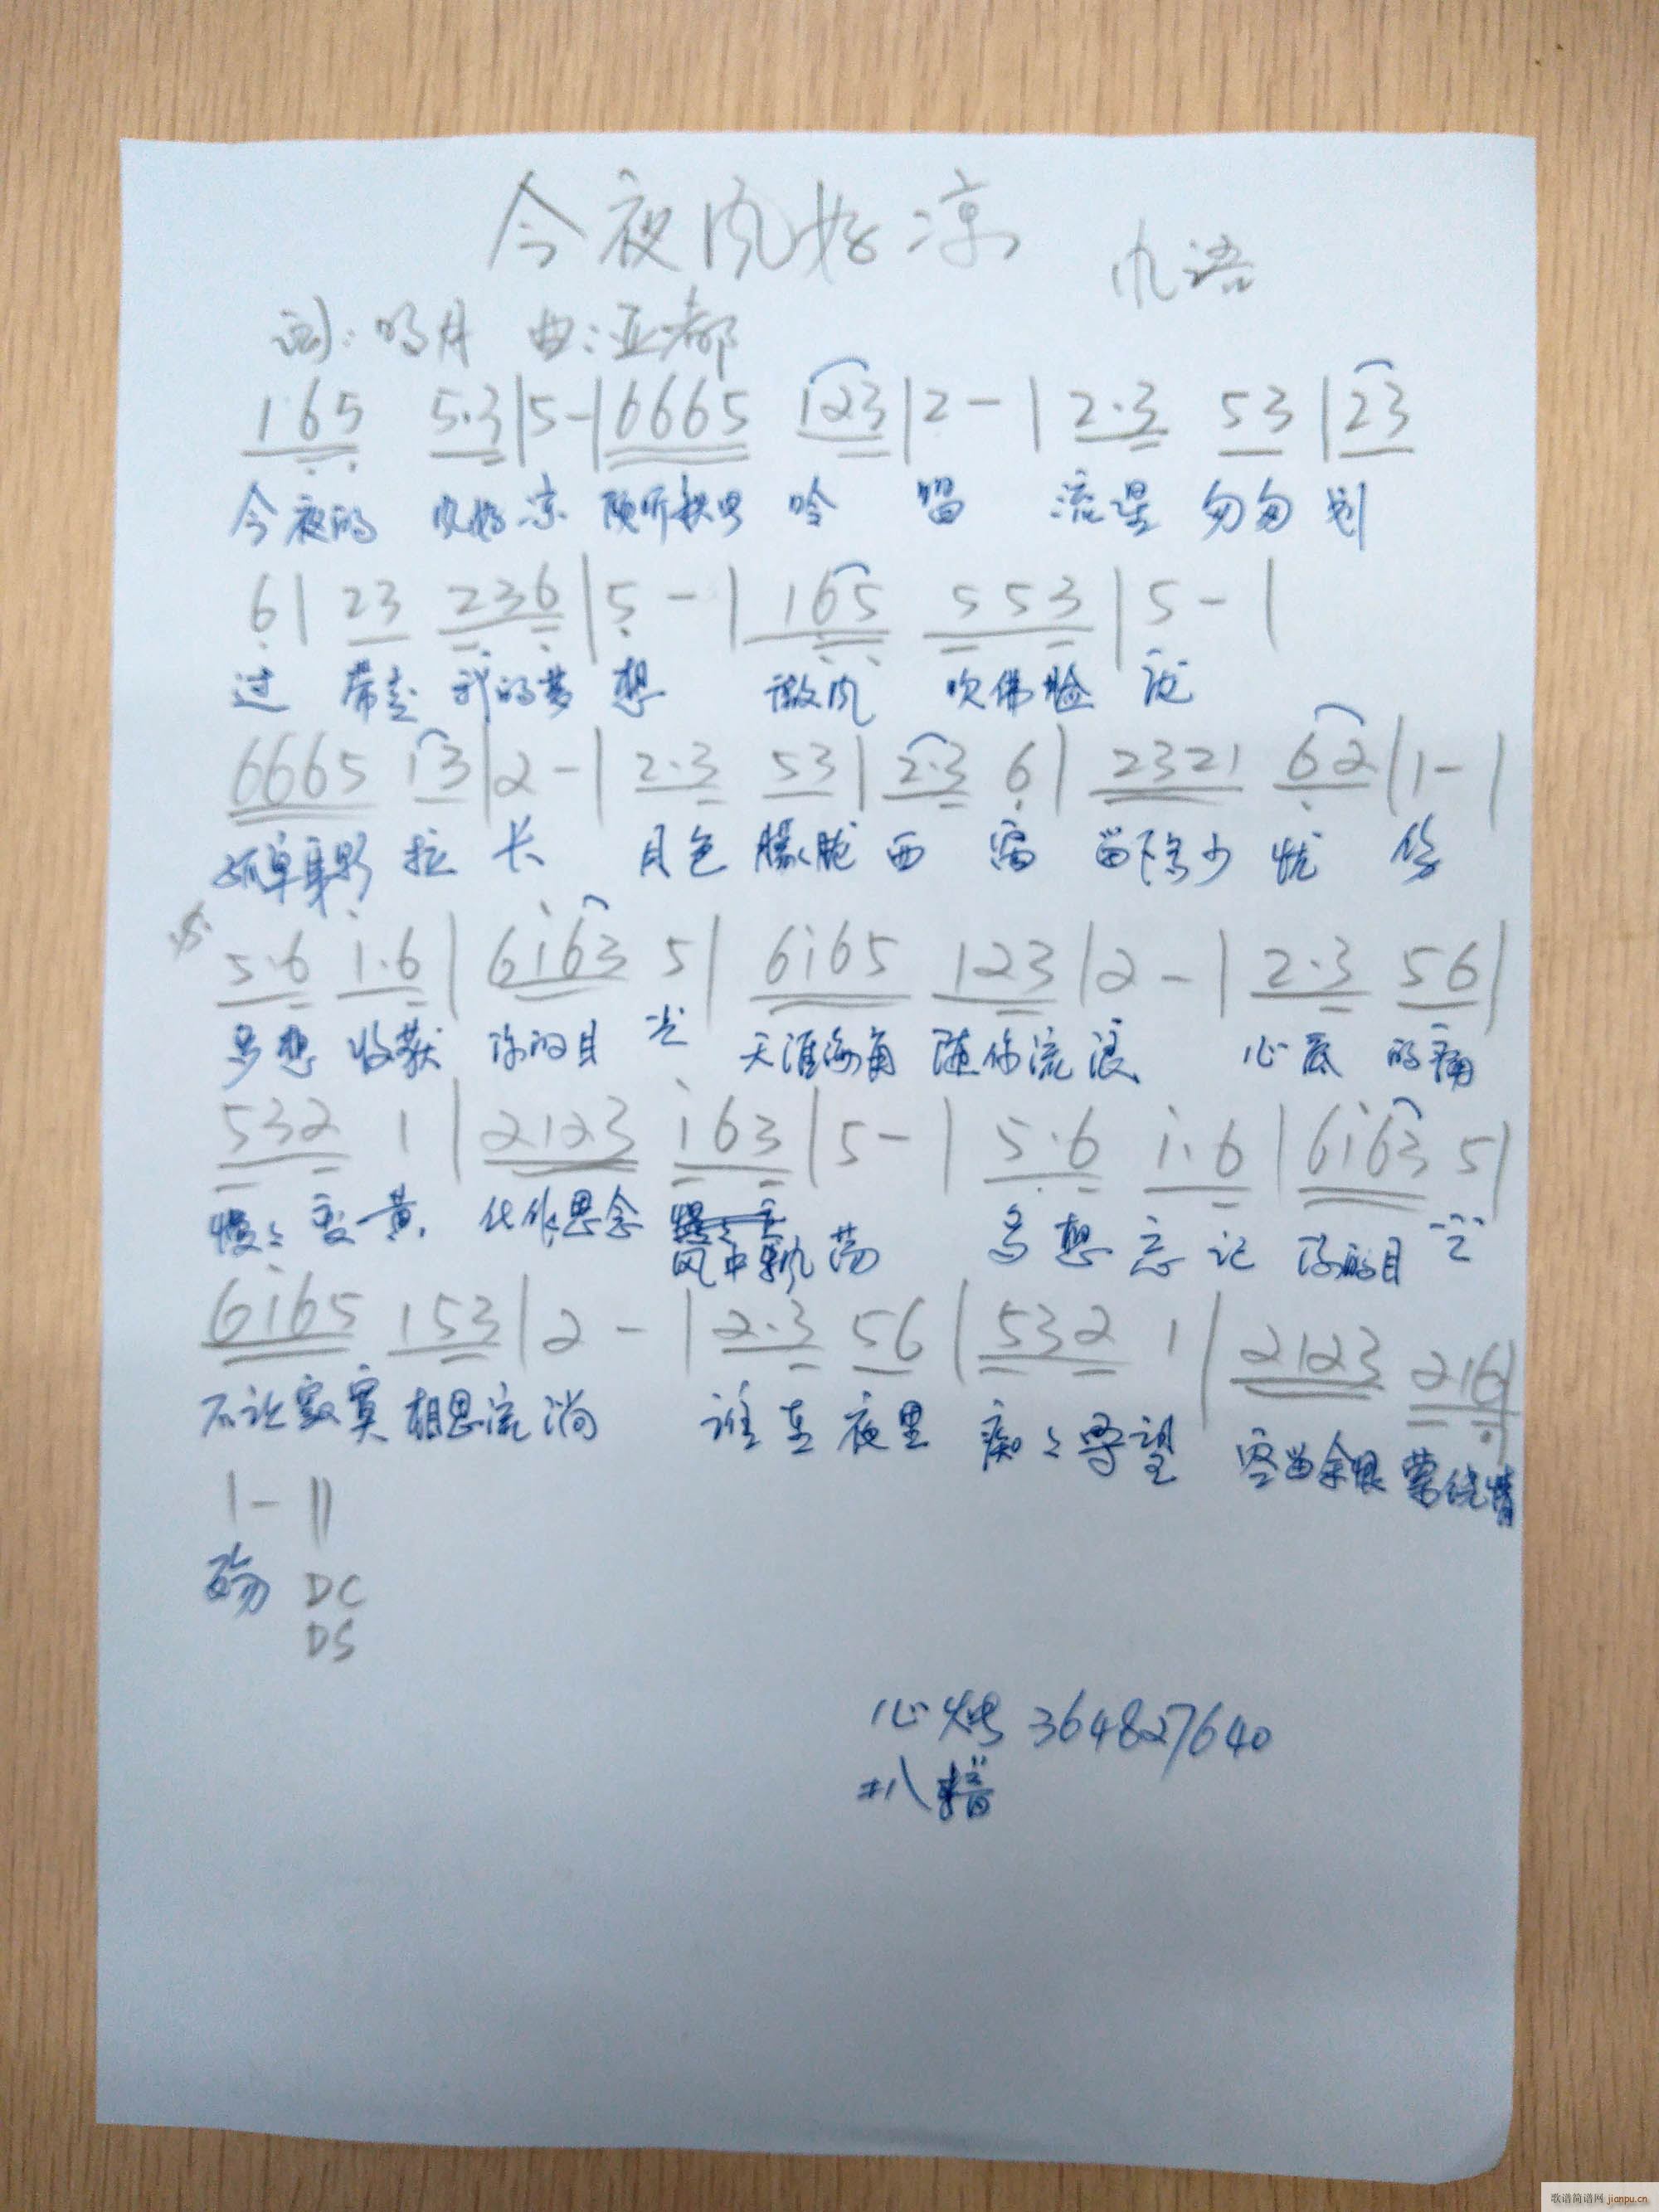 今夜风好凉 九语
词:鸣月 曲:亚都
1 6 5 5·3|5-|6665 123|2-|2·3 53|23
今夜的 风好凉 倾听秋 吟唱 流星 匆匆 划
6|23 236|5-|165 553|5-|
过 带走 我的梦 想 微风 吹佛脸 庞
6665 13|2-|2·3 53|2·3 6|2321 62|1-|
孤单身影 拉 长 月色 朦胧 西 窗 留下多少 忧 伤
5·6 i·6|6i63 5|6i65 123|2-|2·3 56|
多想 收藏 你的目 光 天涯海角 随你流 浪 心底 的痛
532 1|2123 i63|5-|5·6 i·6|6i63 5|
慢慢 变 黄 化作思念 风中飘 荡 多想 忘记 你的目 光
6i65 153|2-|2·3 56|532 1|2123 216|
不论寂寞 相思流 淌 谁在 夜里 痴痴守望 空留余恨 萦绕情
1-||
殇 DC
DS
心烤 364827640
扒谱
歌谱简谱网 jianpu.cn